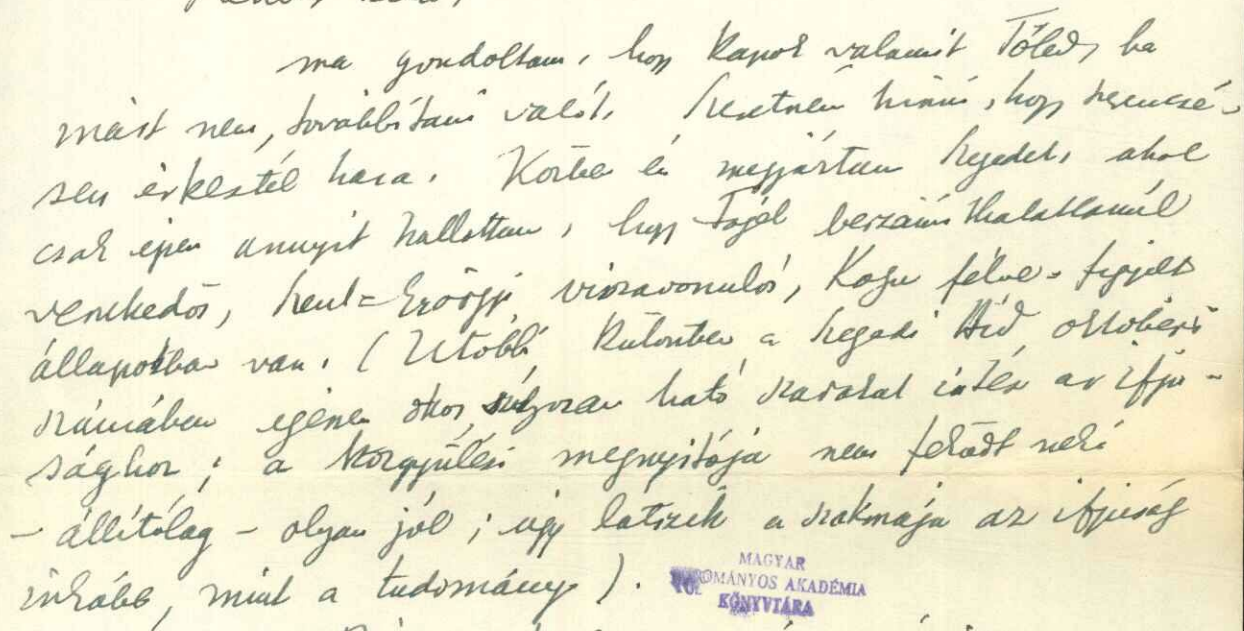 ma gondoltam, hogy kapok valamit Tőled, ha
mást nem, továbbítani valót. Szeretném hinni, hogy szerencsé-
sen érkeztél haza. Közben én megjártam Szegedet, ahol
csak épen annyit hallottam, hogy Fogel beszámíthatatlanúl
verekedős, Szent=Györgyi visszavonulós, Koga félve-figyelő
állapotban van. (Utóbbi különben a Szegedi Híd októberi
számában egészen okos, súlyosan ható szavakat intéz az ifjú-
sághoz; a közgyűlési megnyitója nem sikerült neki
- állítólag - olyan jól; úgy látszik a szakmája az ifjúság
inkább, mint a tudomány).
MAGYAR
TUDOMÁNYOS AKADÉMIA
KÖNYVTÁRA